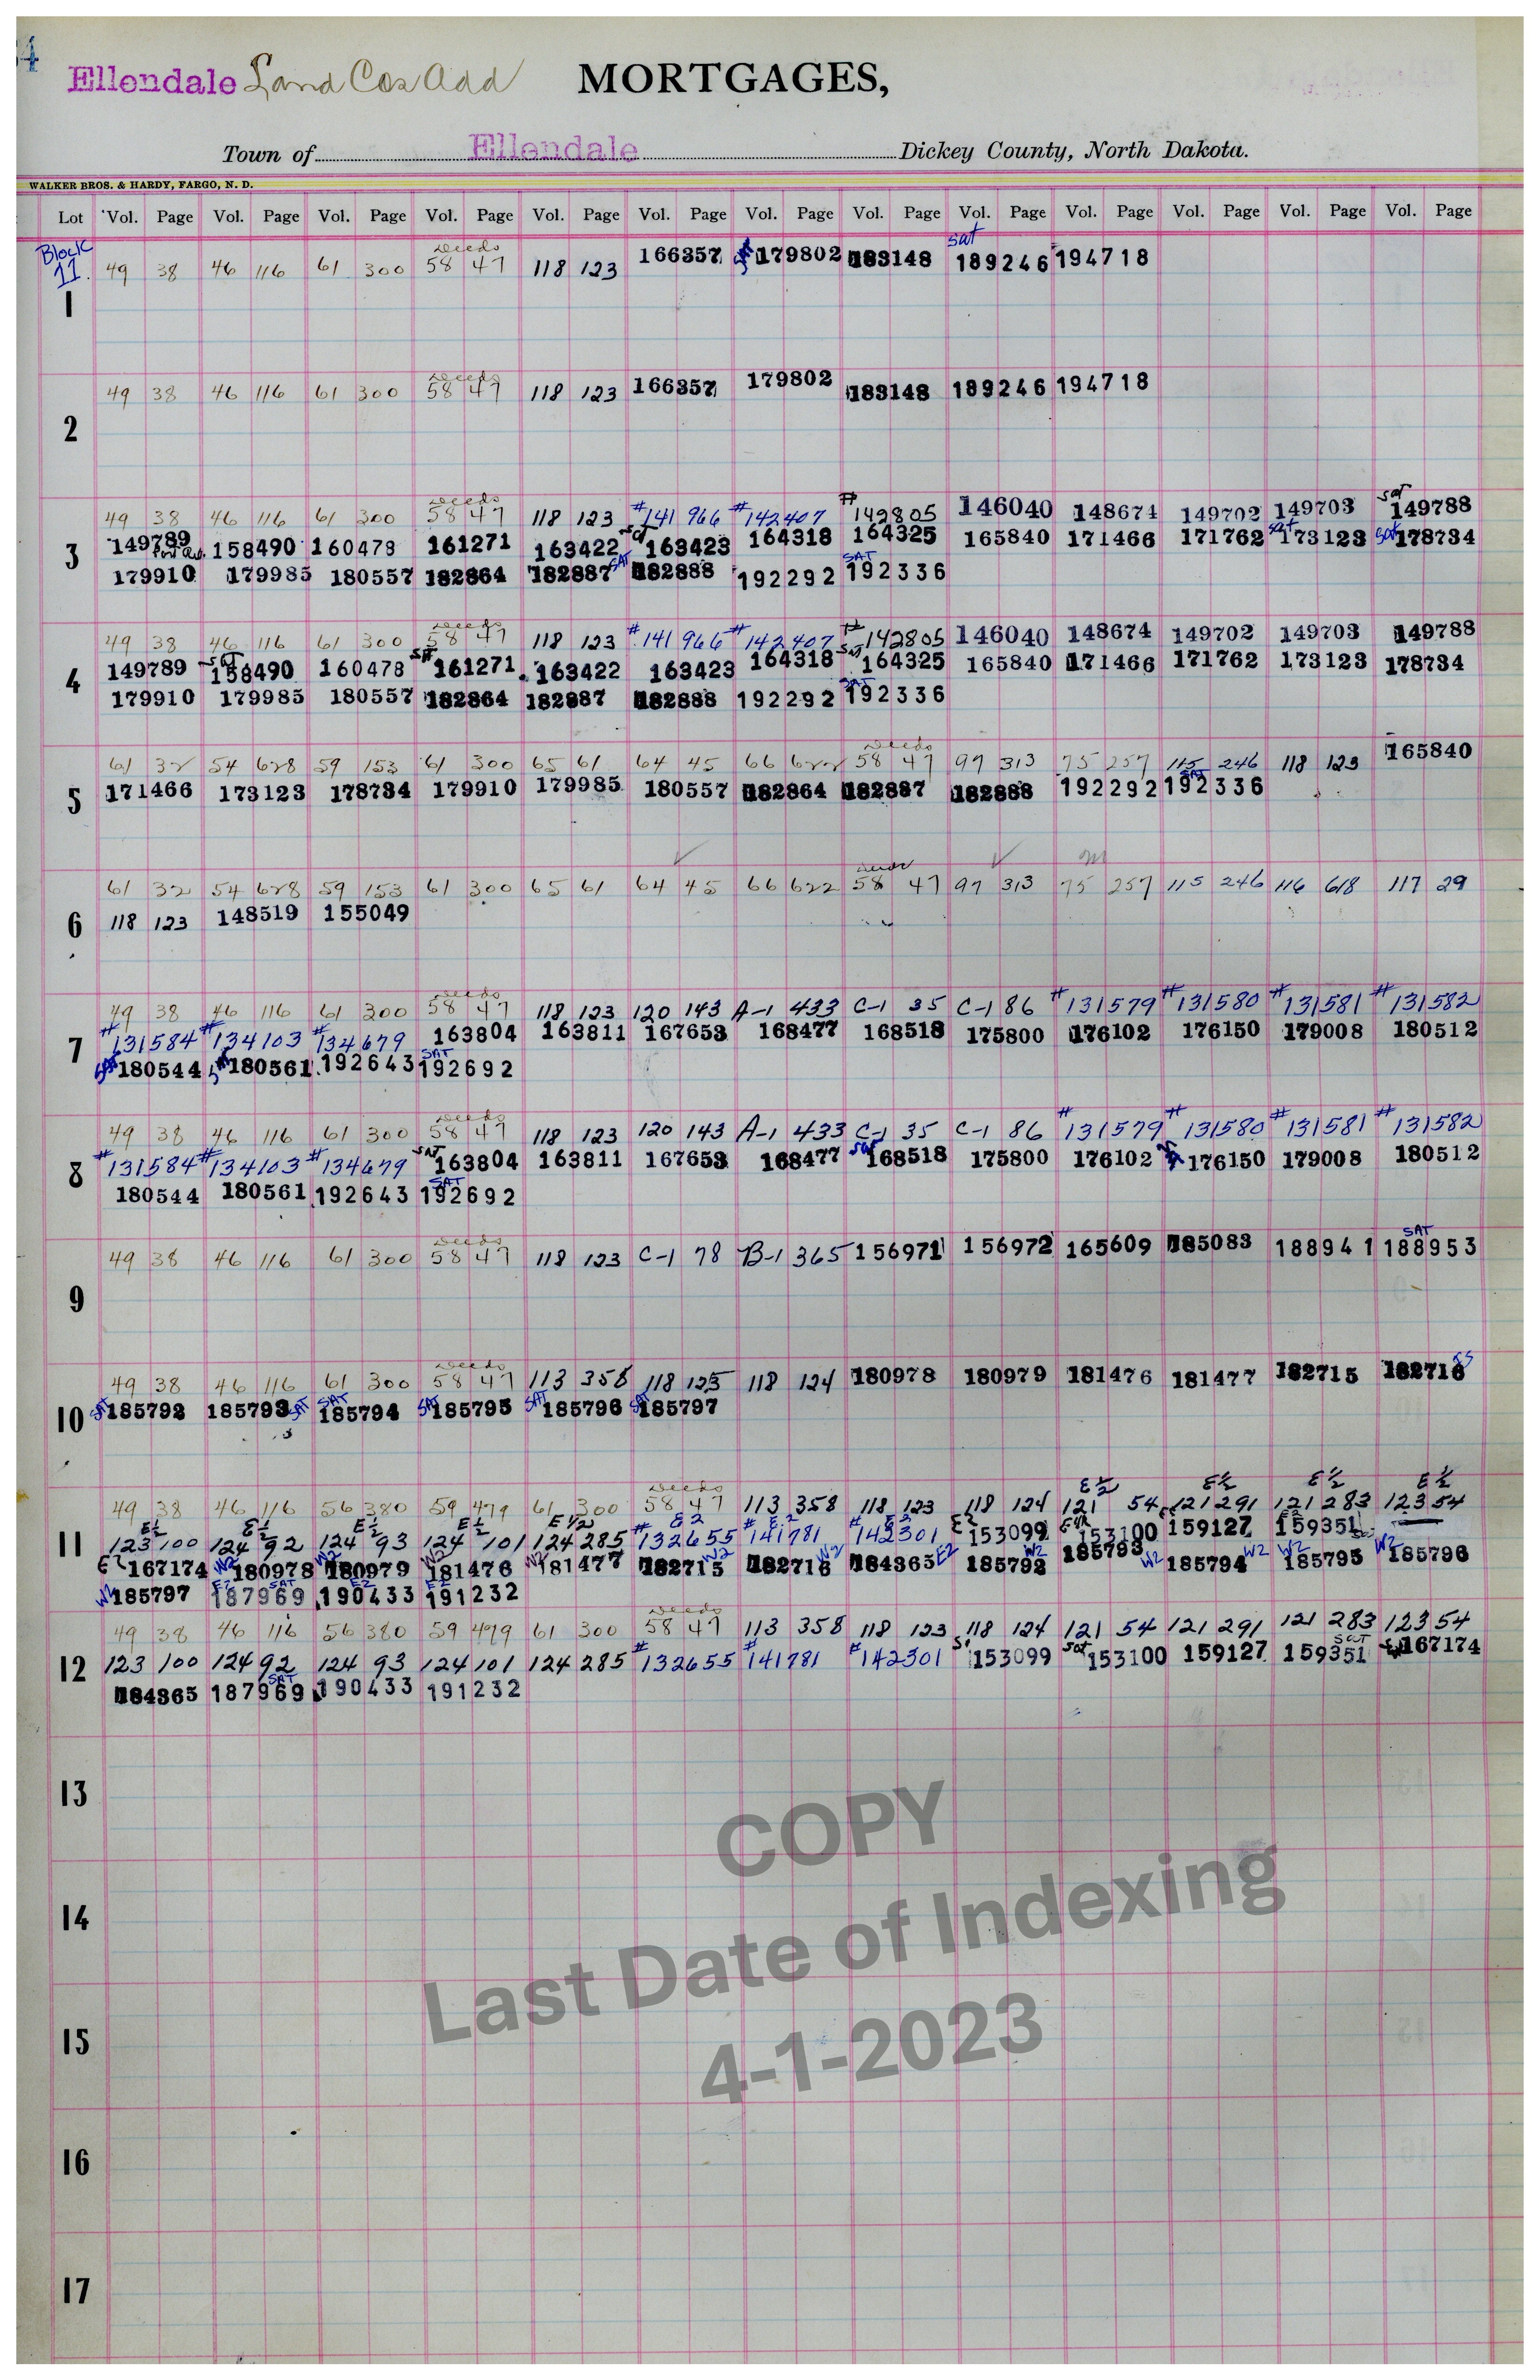 Ellendale Land Cos Add MORTGAGES,
Town of Ellendale Dickey County, North Dakota.
WALKER BROS. & HARDY, FARGO, N. D.
Lot Vol. Page Vol. Page Vol. Page Vol. Page Vol. Page Vol. Page Vol. Page Vol. Page Vol. Page Vol. Page Vol. Page Vol. Page Vol. Page
Block 11.
Deeds sat
49 38 46 116 61 300 58 47 118 123 166357 179802 183148 189246 194718
1
Deeds
49 38 46 116 61 300 58 47 118 123 166357 179802 183148 189246 194718
2
Deeds
49 38 46 116 61 300 58 47 118 123 #141966 #142407 #142805 146040 148674 149702 149703 sat 149788
3 149789 158490 160478 161271 163422 sat 163423 164318 164325 165840 171466 171762 sat 173123 sat 178734
179910 179985 180557 182864 182887 SAT 182888 192292 SAT 192336
Deeds
49 38 46 116 61 300 58 47 118 123 #141966 #142407 #142805 146040 148674 149702 149703 149788
4 149789 sat 158490 160478 sat 161271 163422 163423 164318 sat 164325 165840 171466 171762 173123 178734
179910 179985 180557 182864 182887 182888 192292 SAT 192336
Deeds
61 32 54 628 59 153 61 300 65 61 64 45 66 622 58 47 97 313 75 257 115 246 118 123 165840
5 171466 173123 178734 179910 179985 180557 182864 182887 182888 192292 SAT 192336
Deeds
61 32 54 628 59 153 61 300 65 61 64 45 66 622 58 47 97 313 75 257 115 246 116 618 117 29
6 118 123 148519 155049
Deeds
49 38 46 116 61 300 58 47 118 123 120 143 A-1 433 C-1 35 C-1 86 #131579 #131580 #131581 #131582
7 #131584 #134103 #134679 163804 163811 167653 168477 168518 175800 176102 176150 179008 180512
SAT 180544 SAT 180561 192643 SAT 192692
Deeds
49 38 46 116 61 300 58 47 118 123 120 143 A-1 433 C-1 35 C-1 86 #131579 #131580 #131581 #131582
8 #131584 #134103 #134679 SAT 163804 163811 167653 168477 sat 168518 175800 176102 176150 179008 180512
180544 180561 192643 SAT 192692
Deeds SAT
49 38 46 116 61 300 58 47 118 123 C-1 78 B-1 365 156971 156972 165609 185083 188941 188953
9
Deeds
49 38 46 116 61 300 58 47 113 358 118 123 118 124 180978 180979 181476 181477 182715 182716
10 SAT 185792 185793 SAT SAT 185794 SAT 185795 SAT 185796 SAT 185797
Deeds E½ E½ E½ E½
49 38 46 116 56 380 59 479 61 300 58 47 113 358 118 123 118 124 121 54 121 291 121 283 123 54
E½ E½ E½ E½ E1/2 E2 E2 E2
11 123 100 124 92 124 93 124 101 124 285 #132655 #141781 #142301 E2 153099 153100 159127 159351
E2 167174 W2 180978 W2 180979 W2 181476 W2 181477 182715 W2 182716 W2 184365 E2 185792 W2 185793 W2 185794 W2 W2 185795 W2 185796
W2 185797 E2 SAT 187969 E2 190433 E2 191232
Deeds
49 38 46 116 56 380 59 479 61 300 58 47 113 358 118 123 118 124 121 54 121 291 121 283 123 54
12 123 100 124 92 124 93 124 101 124 285 #132655 #141781 #142301 153099 sat 153100 159127 SAT 159351 167174
184365 SAT 187969 190433 191232
13
14
15
16
17
COPY
Last Date of Indexing
4-1-2023